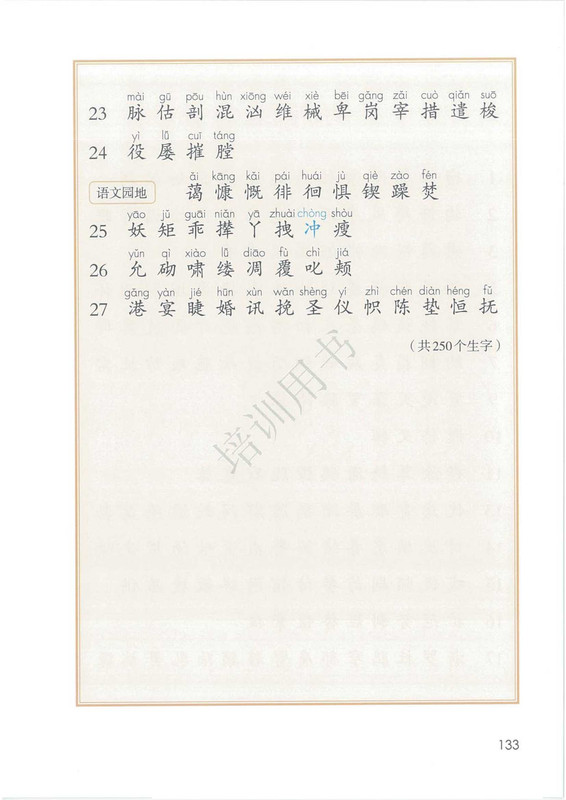 mài gū pōu hùn xiōng wéi xiè bēi gǎng zǎi cuò qiǎn suō
23 脉 估 剖 混 汹 维 械 卑 岗 宰 措 遣 梭
yì lǚ cuī táng
24 役 屡 摧 膛
ǎi kāng kǎi pái huái jù qiè zào fén
语文园地 蔼 慷 慨 徘 徊 惧 锲 躁 焚
yāo jǔ guāi niǎn yā zhuài chòng shòu
25 妖 矩 乖 撵 丫 拽 冲 瘦
yǔn qì xiào lǚ diāo fù chì jiá
26 允 砌 啸 缕 凋 覆 叱 颊
gǎng yàn jié hūn xùn wǎn shèng yí zhì chén diàn héng fǔ
27 港 宴 睫 婚 讯 挽 圣 仪 帜 陈 垫 恒 抚
（共250个生字）
培训用书
133